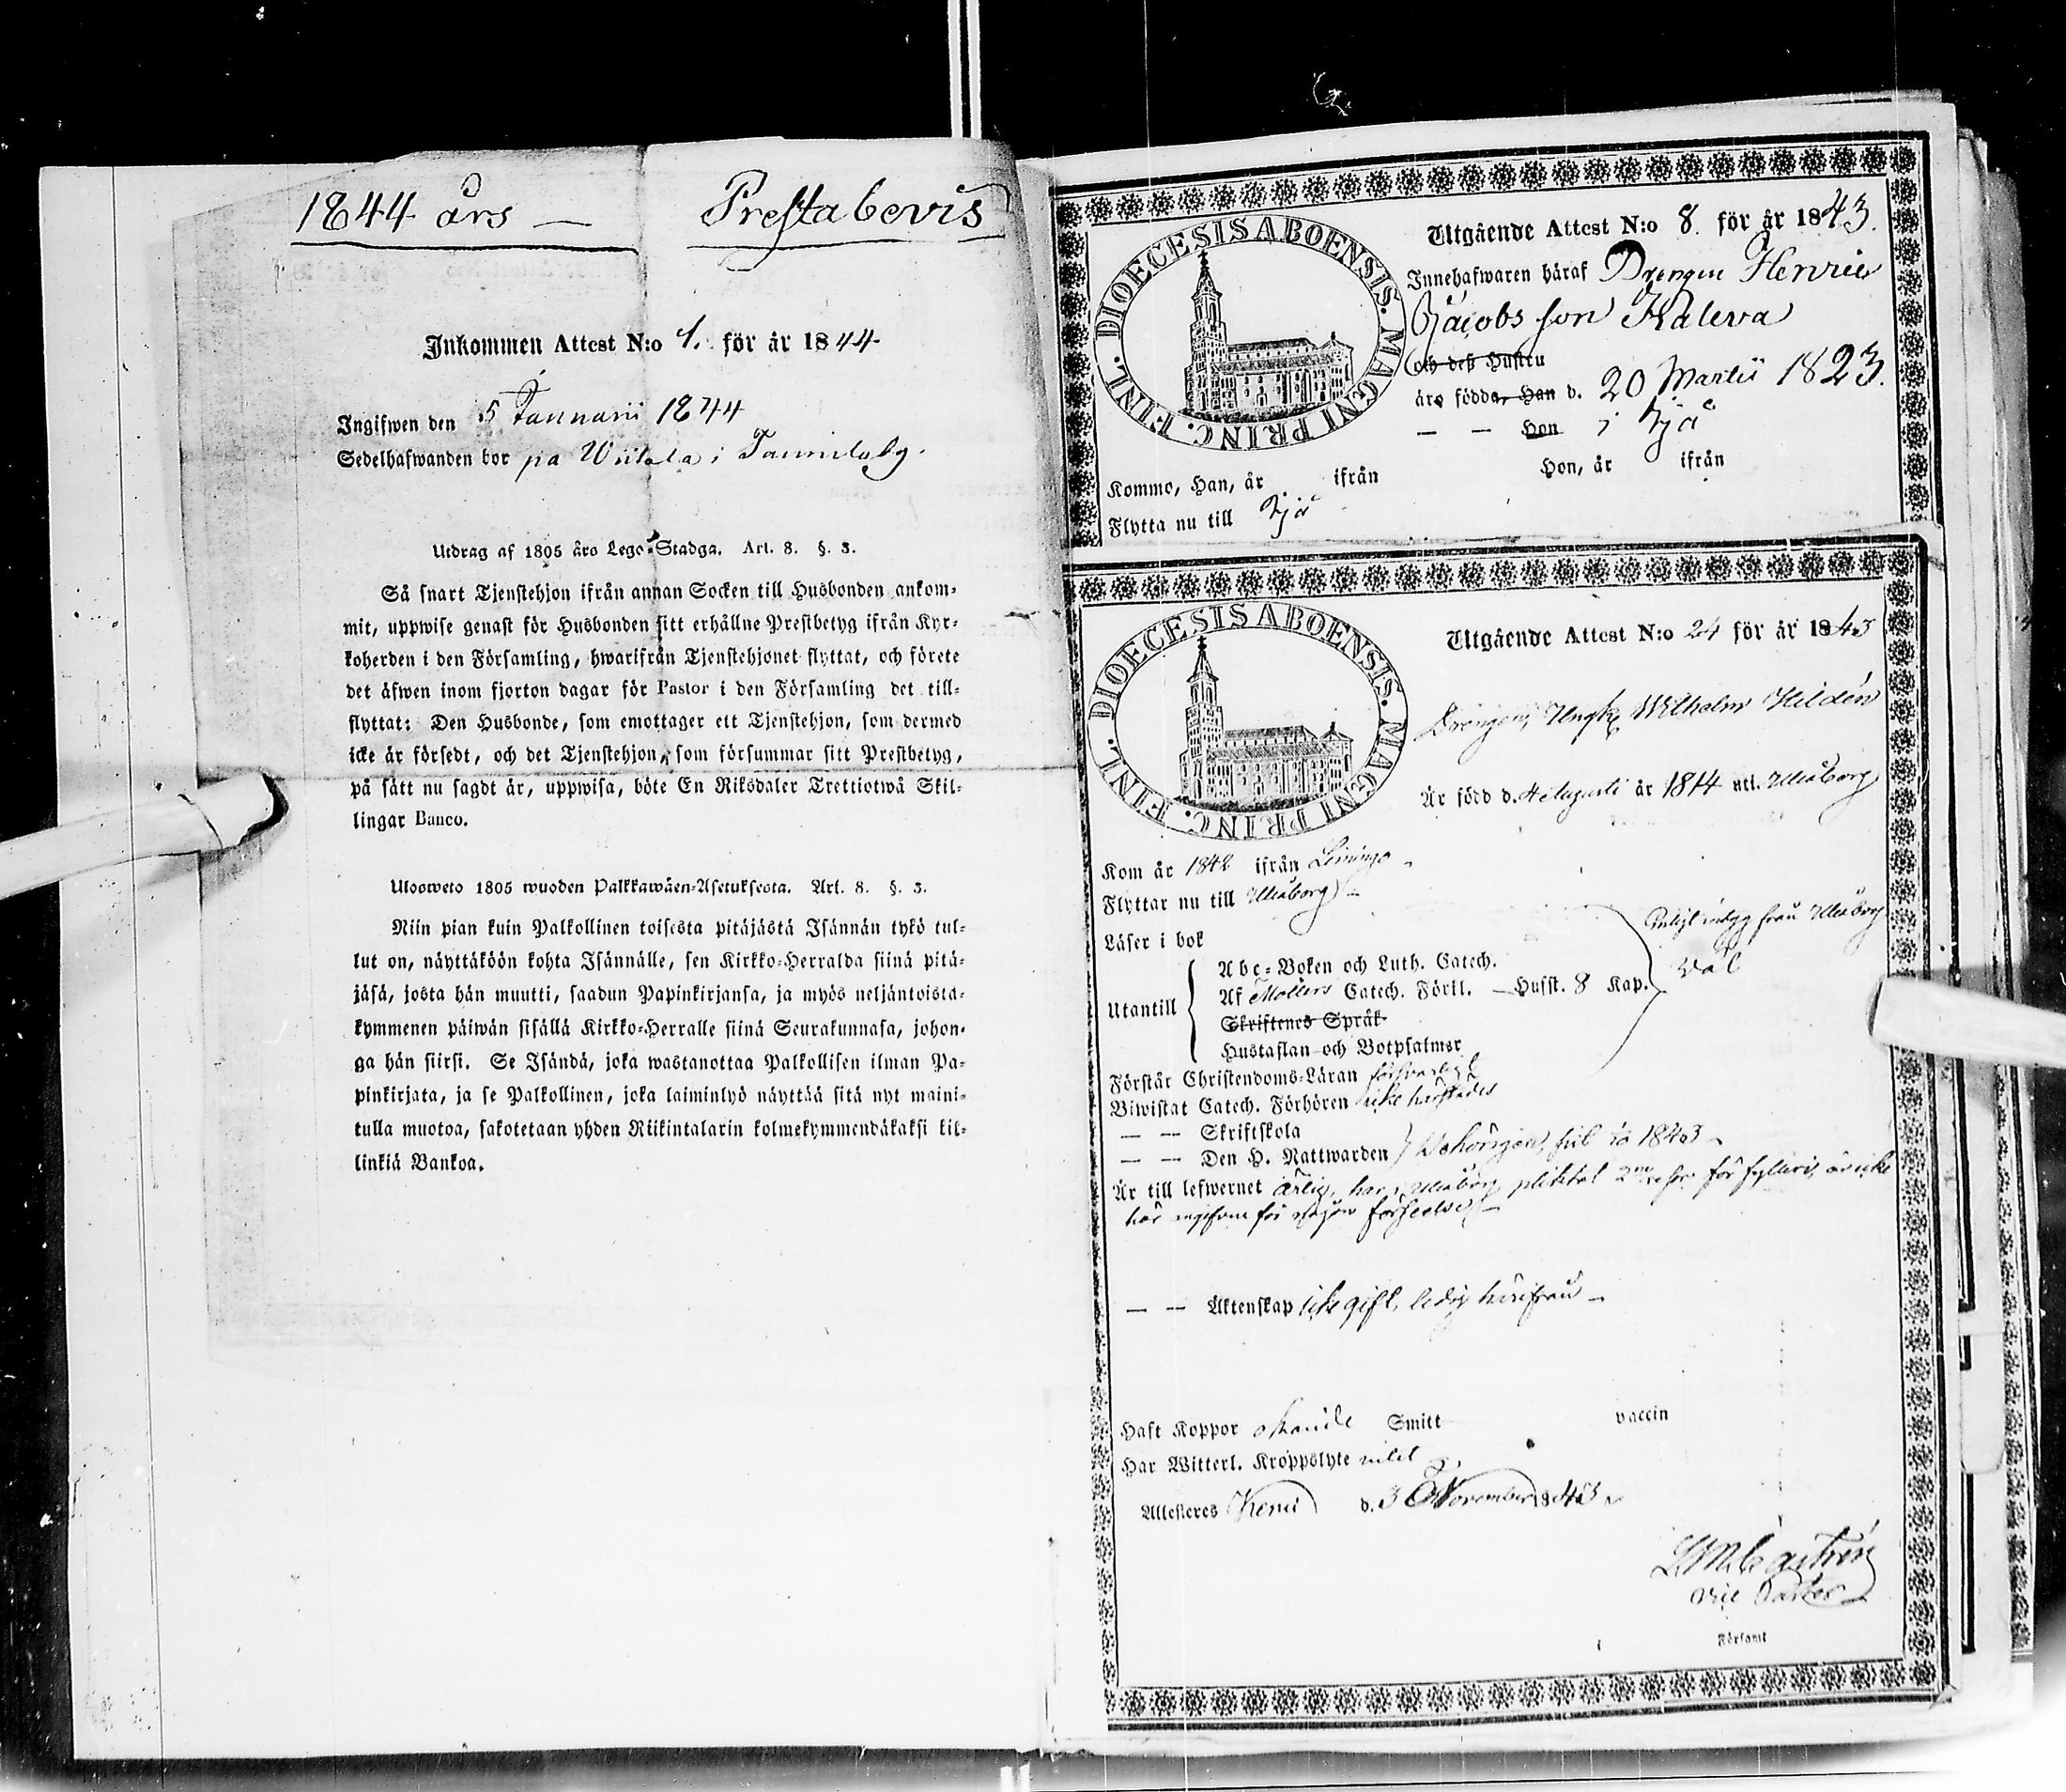 1844 års — Prestabevis
Inkommen Attest N:o 1. för år 1844
Ingifwen den 5 Januarii 1844
Sedelhafwanden bor på Wiitala i
Utdrag af 1805 års Lego-Stadga. Art. 8. §. 3.
Så snart Tjenstehjon ifrån annan Socken till Husbonden ankom-
mit, uppwise genast för Husbonden sitt erhållne Prestbetyg ifrån Kyr-
koherden i den Församling, hwarifrån Tjenstehjonet flyttat, och förete
det äfwen inom fjorton dagar för Pastor i den Församling det till-
flyttat: Den Husbonde, som emottager ett Tjenstehjon, som dermed
icke är försedt, och det Tjenstehjon, som försummar sitt Prestbetyg,
på sätt nu sagdt är, uppwisa, böte En Riksdaler Trettiotwå Skil-
lingar Banco.
Ulosweto 1805 wuoden Palkkawäen-Asetuksesta. Art. 8. §. 3.
Niin pian kuin Palkollinen toisesta pitäjästä Isännän tykö tul-
lut on, näyttäköön kohta Isännälle, sen Kirkko-Herralda siinä pitä-
jäsä, josta hän muutti, saadun Papinkirjansa, ja myös neljäntoista-
kymmenen päiwän sisällä Kirkko-Herralle siinä Seurakunnasa, johon-
ga hän siirsi. Se Isändä, joka wastanottaa Palkollisen ilman Pa-
pinkirjata, ja se Palkollinen, joka laiminlyö näyttää sitä nyt maini-
tulla muotoa, sakotetaan yhden Riikintalarin kolmekymmendäkaksi kil-
linkiä Bankoa.
DIOECESIS ABOENSIS. MAGNI PRINC. FINL.
Utgående Attest N:o 8. för år 1843.
Innehafwaren häraf Drengen Henric
Jacobsson Kaleva
och dess Hustru
äro födda, Han d. 20 Martii 1823.
— — Hon i Ijå
Kommo, Han, år ifrån Hon, år ifrån
Flytta nu till Ijå
DIOECESIS ABOENSIS. MAGNI PRINC. FINL.
Utgående Attest N:o 24 för år 1843
Drengen, Wilhelm Hildén
Är född d. 4 Augusti år 1814 uti. Uleåborg
Kom år 1842 ifrån Limingo
Flyttar nu till Uleåborg —
Läser i bok
Enligt från Uleåborg
väl
Utantill
Abc-Boken och Luth. Catech.
Af Möllers Catech. Förkl. — Husst. 8 Kap.
Skriftenes Språk
Hustaflan och Botpsalmer
Förstår Christendoms-Läran försvarligt
Biwistat Catech. Förhören icke härstädes
— — Skriftskola
— — Den H. Nattwarden behörigen, 1843
Är till lefwernet ärlig, har i Uleåborg pliktat för fylleri, är icke
här angifven för någon förseelse —
— — Äktenskap icke gift, ledig härifrån —
Haft Koppor Smitt vaccin
Har Witterl. Kroppslyte intet
Attesteres Kemi d. 30 November 1843
Castrén
Vice Pastor
Församl